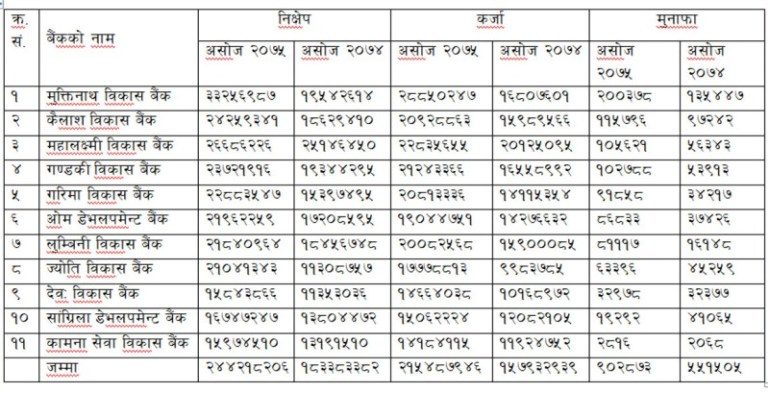 क्र. सं. बैंकको नाम निक्षेप कर्जा मुनाफा
असोज २०७५ असोज २०७४ असोज २०७५ असोज २०७४ असोज २०७५ असोज २०७४
१ मुक्तिनाथ विकास बैंक ३३२५६९८७ १९५४२६१४ २८८५०२४७ १६८०७६०१ २००३७८ १३५४४७
२ कैलाश विकास बैंक २४२५९३४१ १८६२९४१० २०९२८८६३ १५९८९५६६ ११५७९६ ९७२४२
३ महालक्ष्मी विकास बैंक २६६८६२२६ २५१४६४५० २२८३५६५५ २०१२५०९५ १०५६२१ ५६३४३
४ गण्डकी विकास बैंक २३७२१९१६ १९३४४२९५ २१२४३३६६ १६५५८९९२ १०२७८८ ५३९१३
५ गरिमा विकास बैंक २२८८३५४७ १५३९७४९५ २०८१३३३६ १४११५३५४ ९१८५८ ३४२१७
६ ओम डेभलपमेन्ट बैंक २१९६२२५९ १७२०८५९५ १९०४४७५१ १४२७६६३२ ८६८३३ ३७४२६
७ लुम्बिनी विकास बैंक २१८४०९६४ १८४५६७४८ २००८२५६८ १५९०००८५ ८१११७ १६१४८
८ ज्योति विकास बैंक २१०४१३४३ ११३०८७५७ १७७७८८१३ ९९८३७८५ ६३३९६ ४५२५९
९ देव: विकास बैंक १५८४३८६६ ११३५३०३६ १४६६४०३८ १०१६८९७२ ३२९७८ ३२३७७
१० सांग्रिला डेभलपमेन्ट बैंक १६७४७२४७ १३८०४४७२ १५०६२२२४ १२०८२१०५ १९२९२ ४१०६५
११ कामना सेवा विकास बैंक १५९७४५१० १३१९१५१० १४१८४११५ ११९२४७५२ २८१६ २०६८
जम्मा २४४२१८२०६ १८३३८३३८२ २१५४८७९४६ १५७९३२९३९ ९०२८७३ ५५१५०५